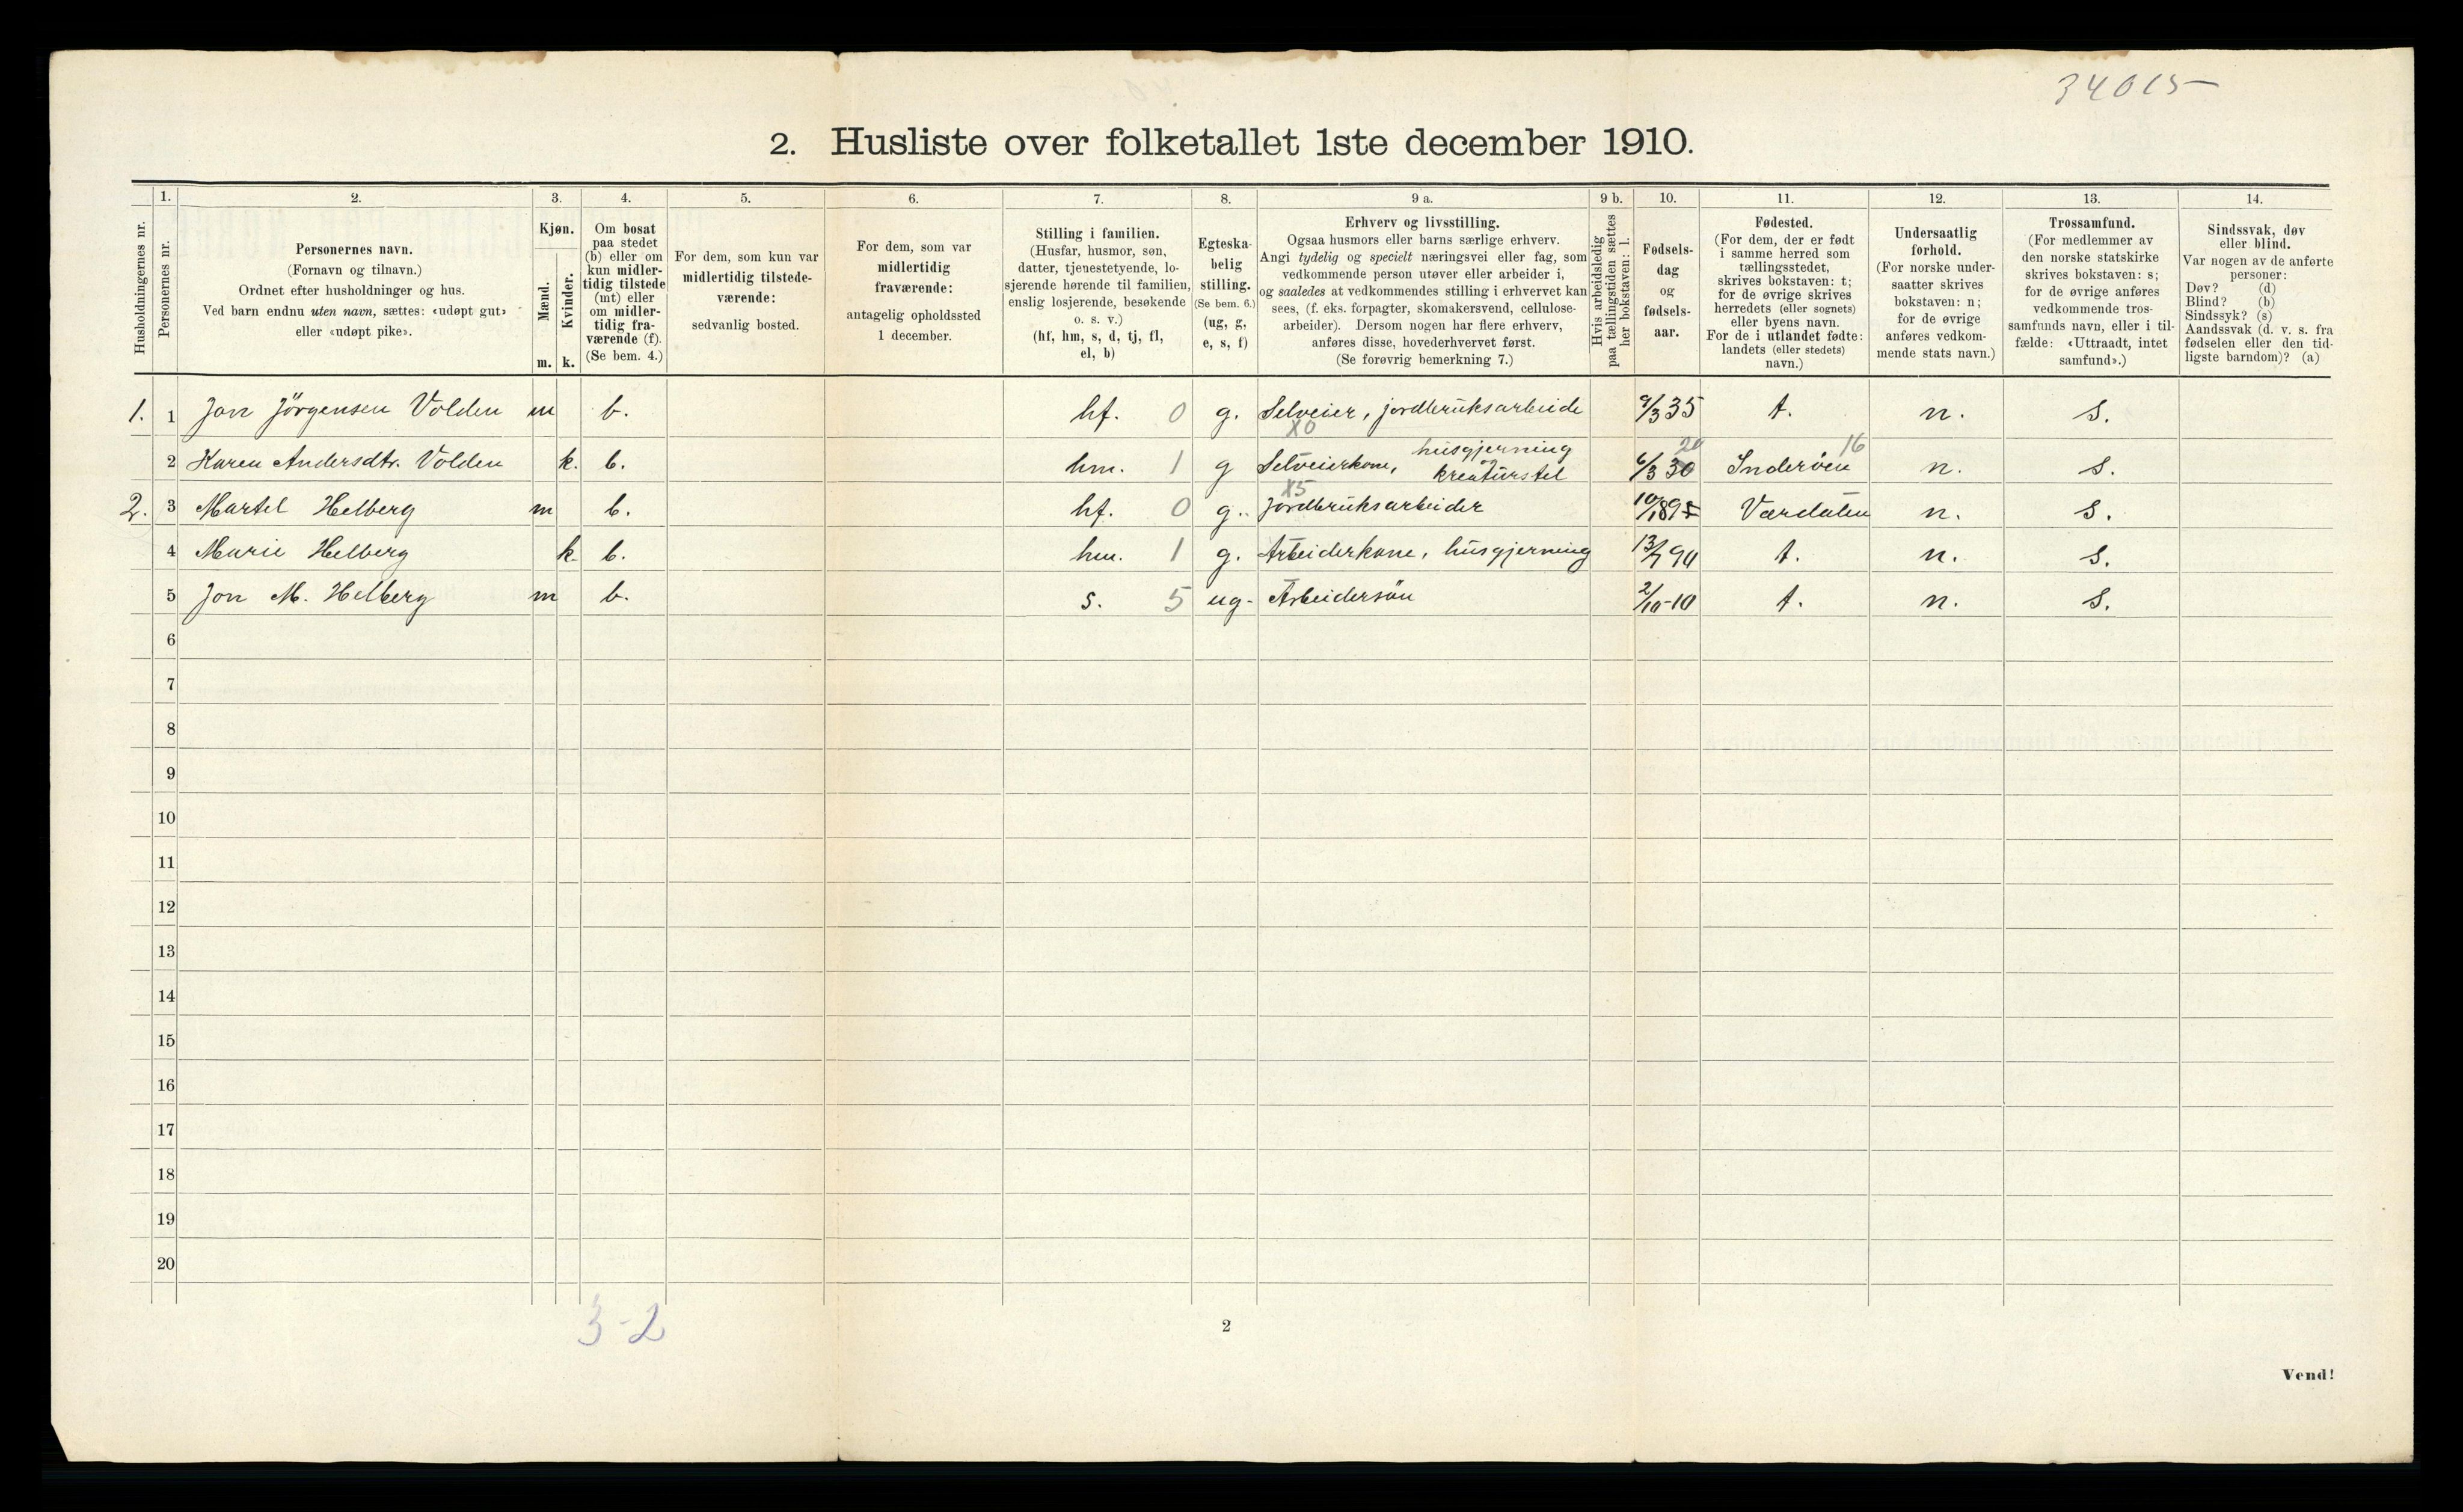 34015
2. Husliste over folketallet 1ste december 1910.
Husholdningernes nr.
1.
Personernes nr.
2.
Personernes navn.
(Fornavn og tilnavn.)
Ordnet efter husholdninger og hus.
Ved barn endnu uten navn, sættes: «udøpt gut»
eller «udøpt pike».
3.
Kjøn.
Mænd.
Kvinder.
m. k.
4.
Om bosat
paa stedet
(b) eller om
kun midler-
tidig tilstede
(mt) eller
om midler-
tidig fra-
værende (f).
(Se bem. 4.)
5.
For dem, som kun var
midlertidig tilstede-
værende:
sedvanlig bosted.
6.
For dem, som var
midlertidig
fraværende:
antagelig opholdssted
1 december.
7.
Stilling i familien.
(Husfar, husmor, søn,
datter, tjenestetyende, lo-
sjerende hørende til familien,
enslig losjerende, besøkende
o. s. v.)
(hf, hm, s, d, tj, fl,
el, b)
8.
Egteska-
belig
stilling.
(Se bem. 6.)
(ug, g,
e, s, f)
9 a.
Erhverv og livsstilling.
Ogsaa husmors eller barns særlige erhverv.
Angi tydelig og specielt næringsvei eller fag, som
vedkommende person utøver eller arbeider i,
og saaledes at vedkommendes stilling i erhvervet kan
sees, (f. eks. forpagter, skomakersvend, cellulose-
arbeider). Dersom nogen har flere erhverv,
anføres disse, hovederhvervet først.
(Se forøvrig bemerkning 7.)
9 b.
Hvis arbeidsledig
paa tællingstiden sættes
her bokstaven: l.
10.
Fødsels-
dag
og
fødsels-
aar.
11.
Fødested.
(For dem, der er født
i samme herred som
tællingsstedet,
skrives bokstaven: t;
for de øvrige skrives
herredets (eller sognets)
eller byens navn.
For de i utlandet fødte:
landets (eller stedets)
navn.)
12.
Undersaatlig
forhold.
(For norske under-
saatter skrives
bokstaven: n;
for de øvrige
anføres vedkom-
mende stats navn.)
13.
Trossamfund.
(For medlemmer av
den norske statskirke
skrives bokstaven: s;
for de øvrige anføres
vedkommende tros-
samfunds navn, eller i til-
fælde: «Uttraadt, intet
samfund».)
14.
Sindssvak, døv
eller blind.
Var nogen av de anførte
personer:
Døv? (d)
Blind? (b)
Sindssyk? (s)
Aandssvak (d. v. s. fra
fødselen eller den tid-
ligste barndom)? (a)
1. 1 Jon Jörgensen Volden m b. hf. 0 g. Selveier, jordbruksarbeide X0 9/3 35 t. n. s.
2 Karen Andersdtr. Volden k. b. hm. 1 g Selveierkone, husgjerning og kreaturstel 6/3 30 Inderöen 16 n. s.
2. 3 Martel Helberg m b. hf. 0 g. X5 Jordbruksarbeider n. s.
4 Marie Helberg k. b. hm. 1 g. Arbeiderkone, husgjerning 13/7 90 t. n. s.
5 Jon M. Helberg m b. s. 5 ug. Arbeidersön 2/10-10 t. n. s.
6
7
8
9
10
11
12
13
14
15
16
17
18
19
20
3-2
2
Vend!